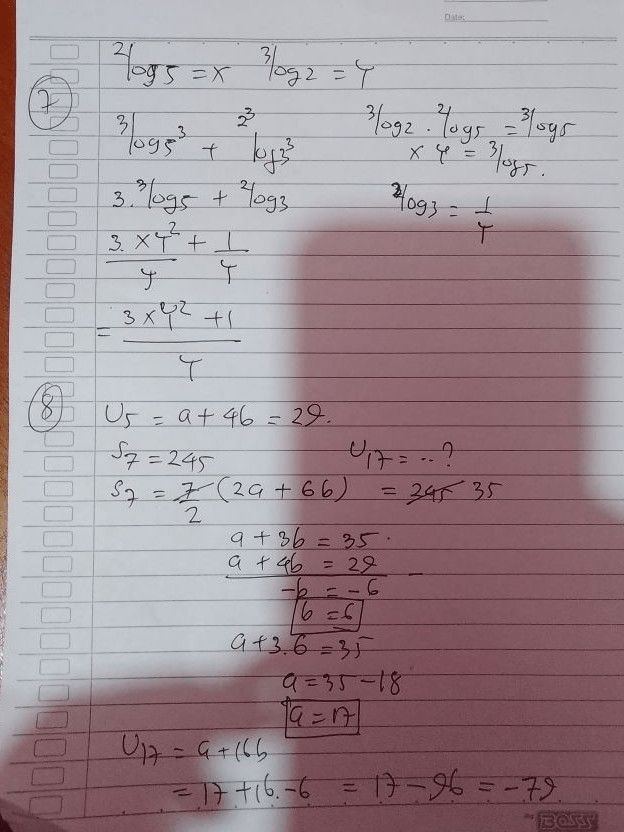 Date:
7
²log5 = x ³log2 = y
³log5³ + ²^³log3³
³log2 . ²log5 = ³log5
x y = ³log5.
3. ³log5 + ²log3
²log3 = 1/y
3.xy²/y + 1/y
= 3xy² + 1 / y
8
U5 = a + 4b = 29.
S7 = 245
U17 = ..?
S7 = 7/2 (2a + 6b) = 245 35
a + 3b = 35.
a + 4b = 29
-b = -6 –
b = 6
a + 3.6 = 35
a = 35 - 18
a = 17
U17 = a + 16b
= 17 + 16.-6 = 17 - 96 = -79
BOSS